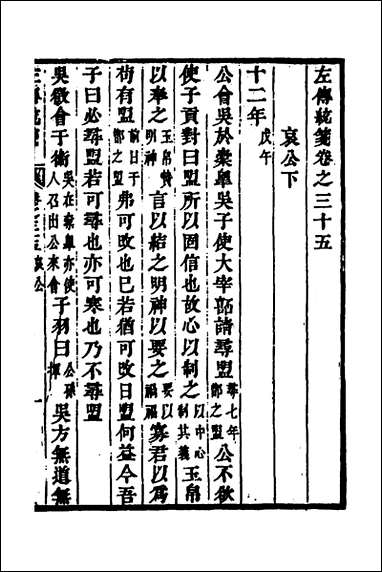 左傳統箋卷之三十五
哀公下
十二年戊午
公會吳於橐皋吳子使大宰嚭請尋盟尋七年鄫之盟公不欲
使子貢對曰盟所以周信也故心以制之以中心制其義玉帛
以奉之玉帛贄明神言以結之明神以要之要以禍福寡君以爲
苟有盟前日于鄫之盟弗可改也已若猶可改日盟何益今吾
子曰必尋盟若可尋也亦可寒也乃不尋盟
吳徵會于衛吳在橐皋亦使人召出公來會子羽曰公孫揮吳方無道無